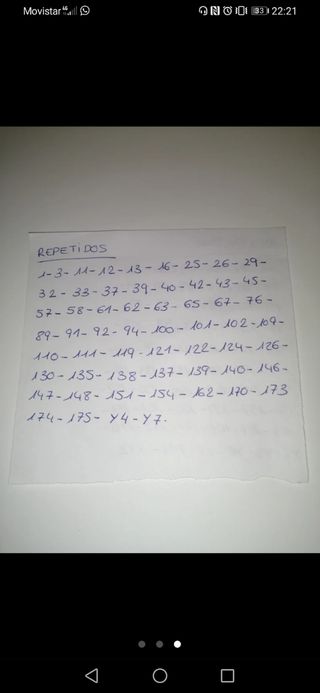 Movistar 33 22:21
REPETIDOS
1-3-11-12-13-16-25-26-29-
32-33-37-39-40-42-43-45-
57-58-61-62-63-65-67-76-
89-91-92-94-100-101-102-109-
110-111-119-121-122-124-126-
130-135-138-137-139-140-146-
147-148-151-154-162-170-173
174-175-Y4-Y7.